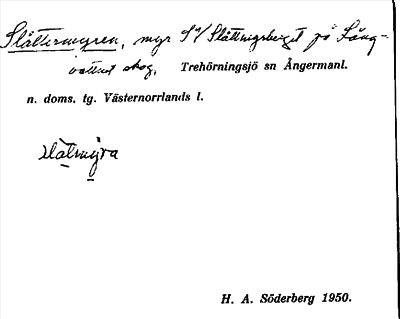 Slåttermyren, myr S o/ Slåttmyrberget på Lång-
vattnet skog, Trehörningsjö sn Ångermanl.
n. doms. tg. Västernorrlands l.
slåtmỳra
H. A. Söderberg 1950.